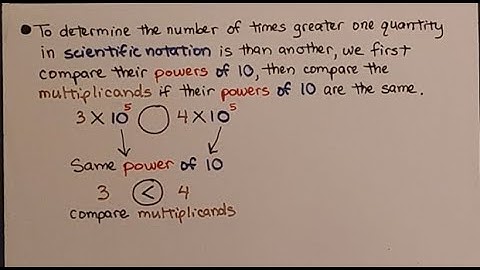 • To determine the number of times greater one quantity
in scientific notation is than another, we first
compare their powers of 10, then compare the
multiplicands if their powers of 10 are the same.
3 × 10⁵ ◯ 4 × 10⁵
Same power of 10
3 < 4
compare multiplicands